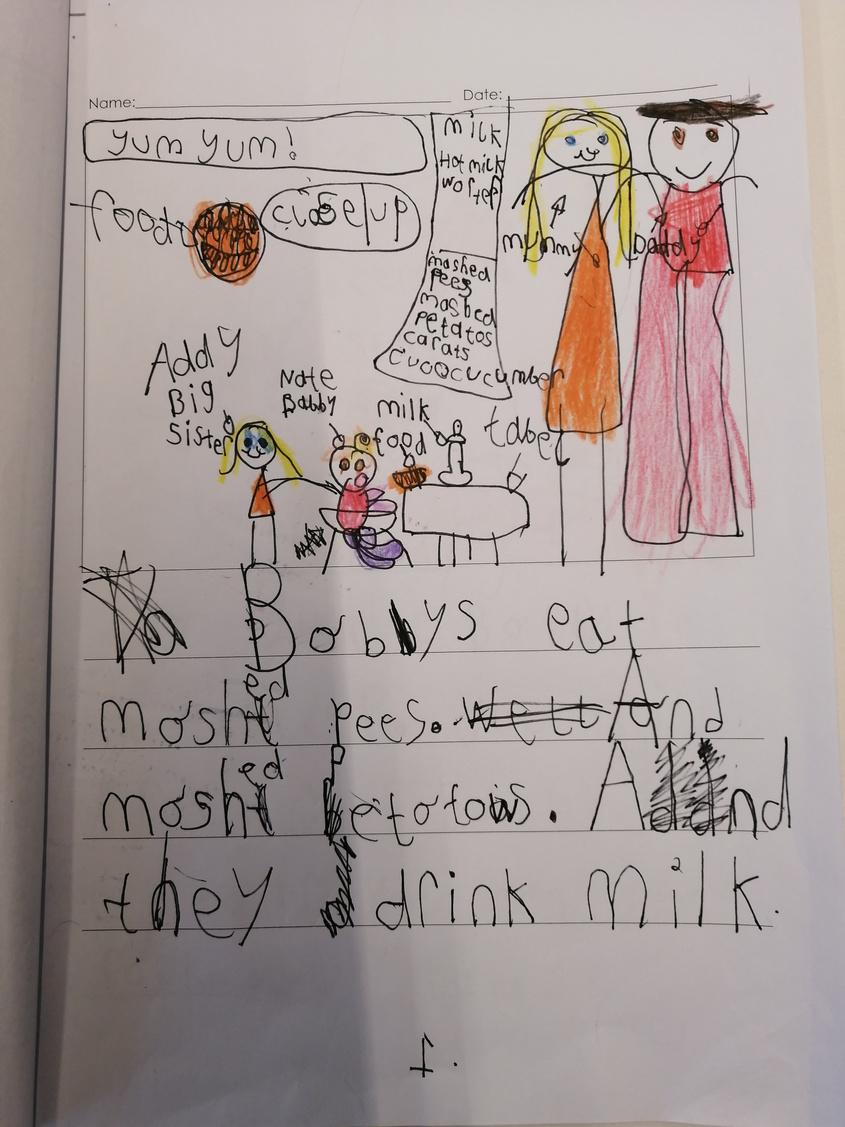 Name:
Date:
yum yum!
food
close up
milk
Hot milk
worter
mashed
pees
mashed
petatos
carats
cucumber
mummy
Daddy
Addy
Big
Sister
Nate
Babby
milk
food
tabel
Babbys eat
mashed pees. And
mashed petotows. And
they drink milk.
1.